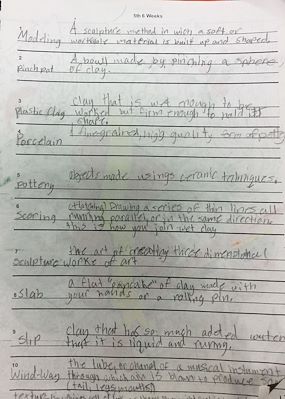 5th 6 Weeks
1
A sculpture method in wich a soft or
Modeling workable material is built up and shaped.
2
A bowl made by pinching a sphere
Pinch pot of clay.
3
clay that is wet enough to be
Plastic Clay worked but firm enough to hold its
shape.
4
Porcelain finegrained, high quality form of
5
Pottery objects made usings ceramic techniques.
6
(Hatching) Drawing a series of thin lines all
Scoring running parallel or in the same direction
this is how you join wet clay
7
the art of creating three dimensional
Sculpture works of art
8
a flat "pancake" of clay made with
slab your hands or a rolling pin.
9
Slip clay that has so much added water
that it is liquid and runny.
10
the tube or channel of a musical instrument
Wind-Way through which air is blown to produce
(tail, legs, mouth)